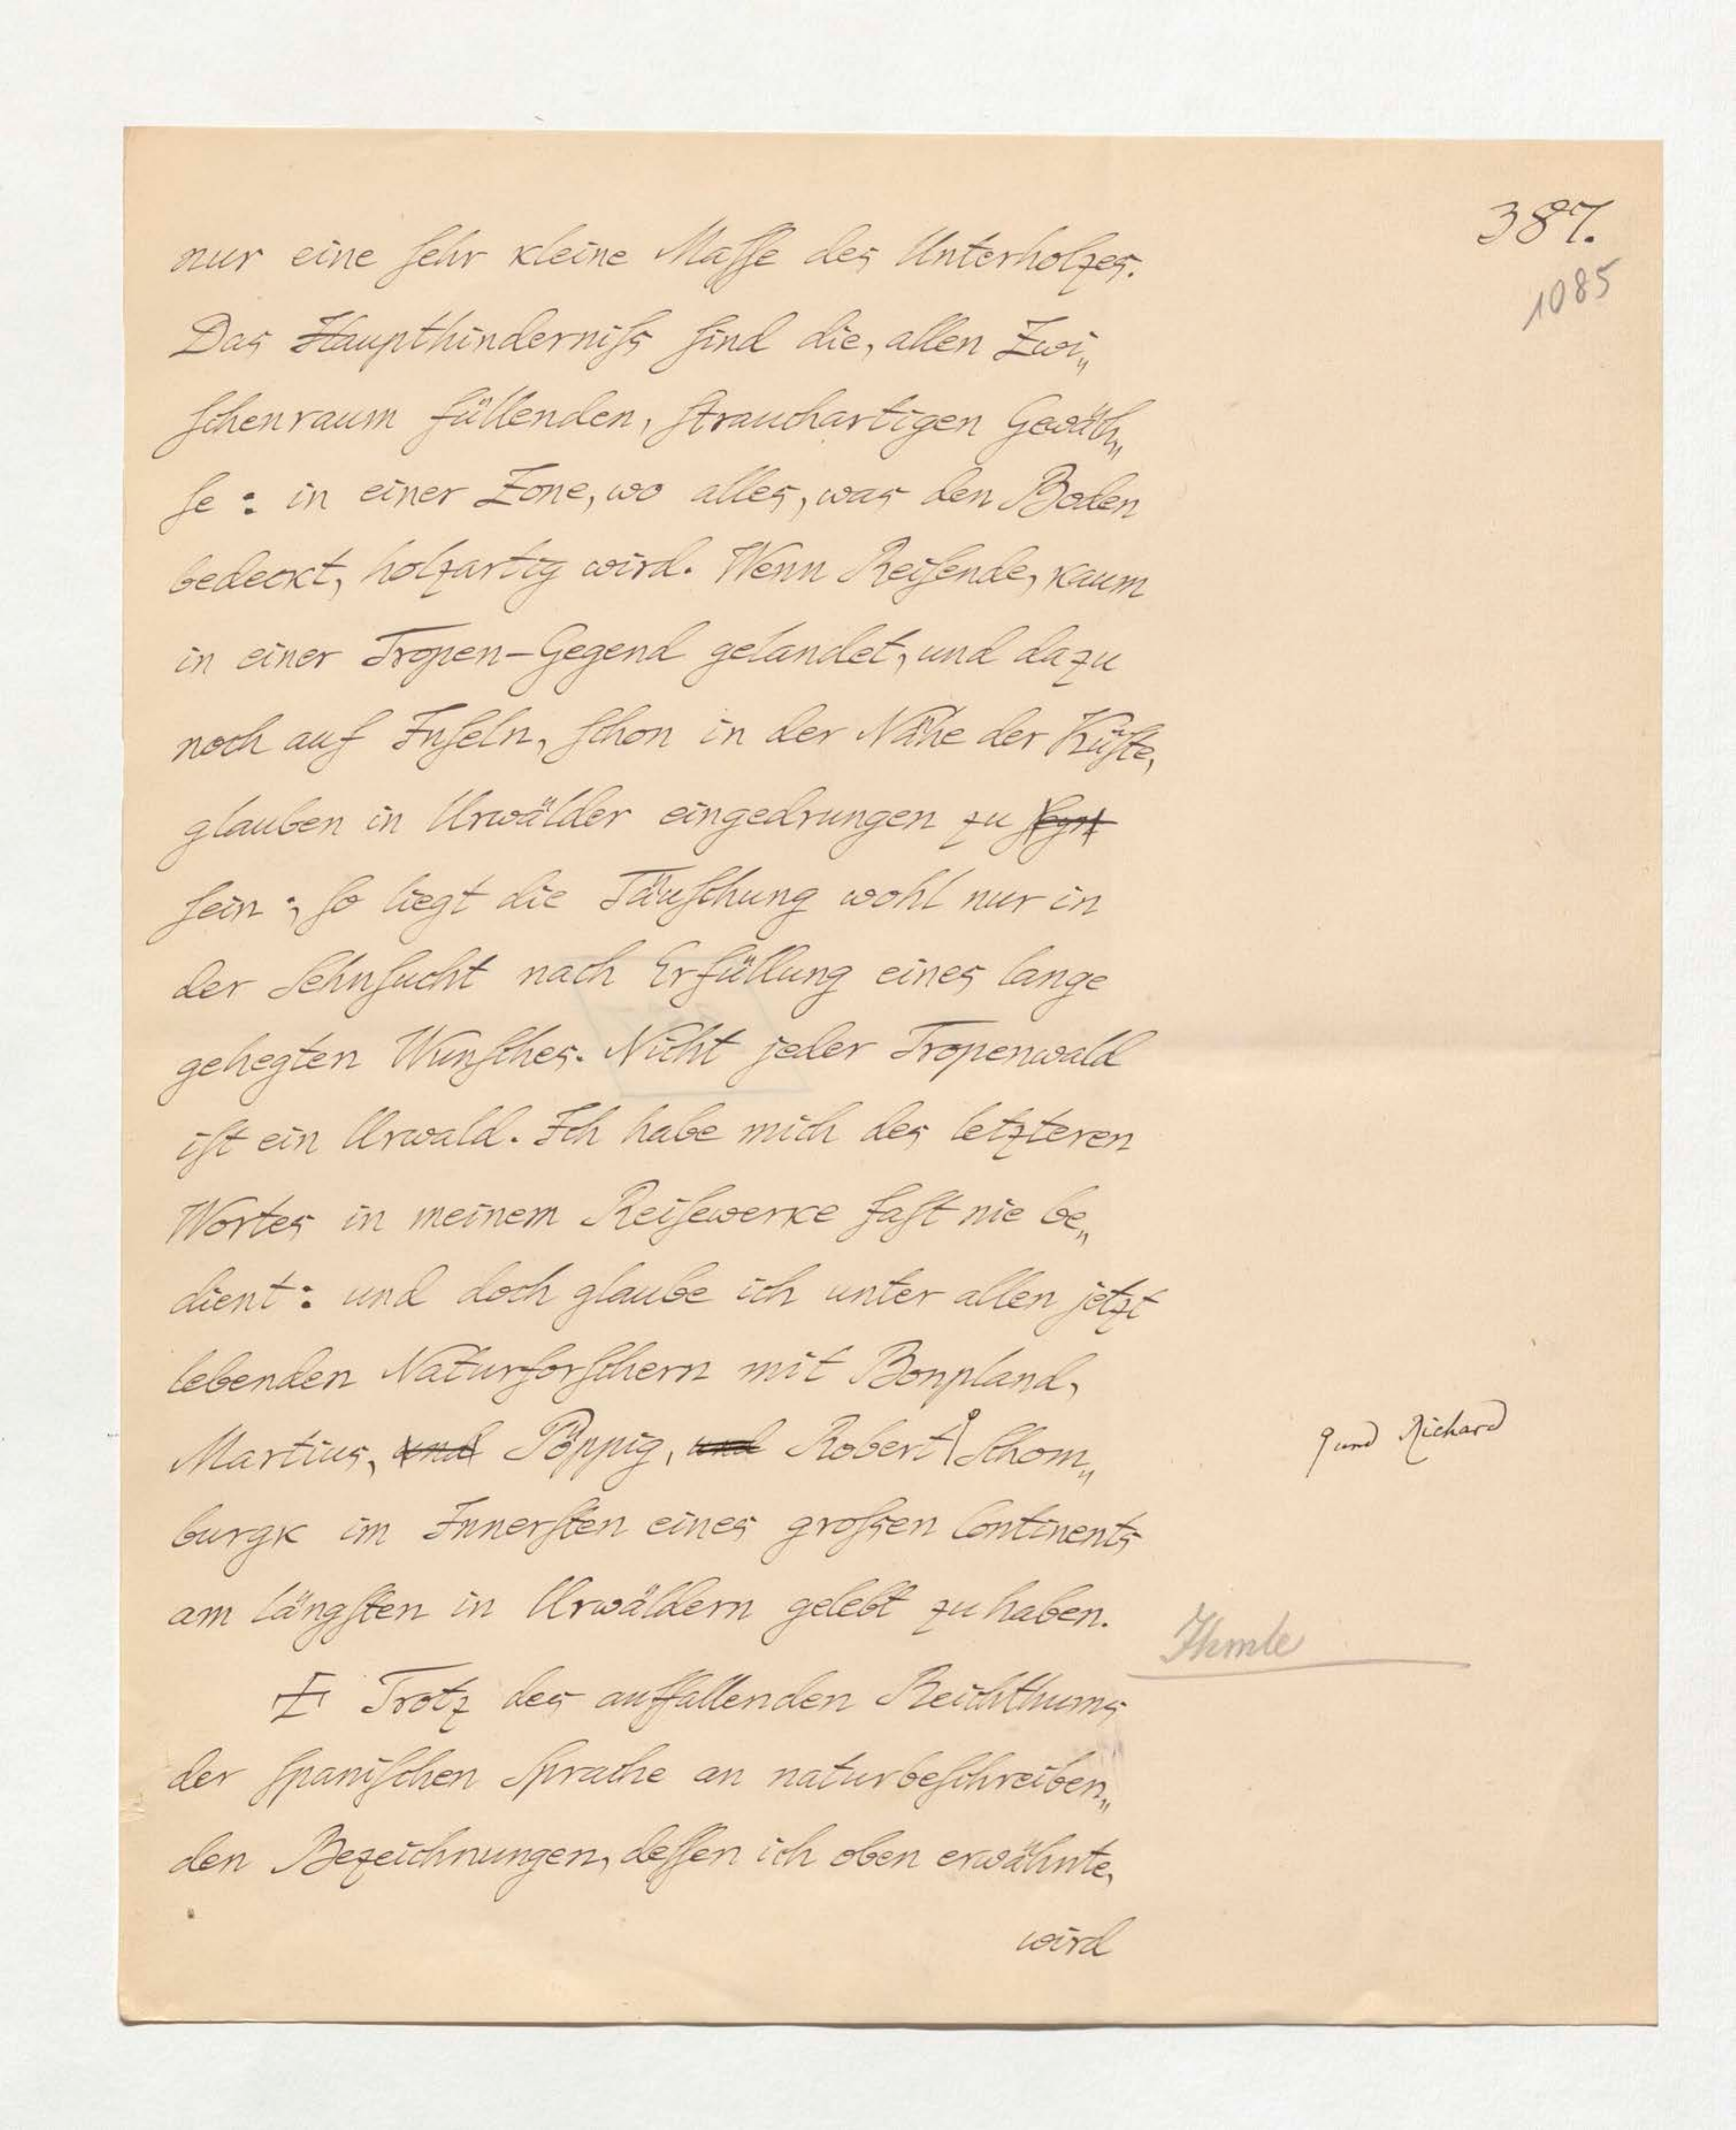 387.
1085
nur eine sehr kleine Masse des Unterholzes.
Das Haupthinderniß sind die, allen Zwi„
schenraum füllenden, strauchartigen Gewäch„
se: in einer Zone, wo alles, was den Boden
bedeckt, holzartig wird. Wenn Reisende, kaum
in einer Tropen-Gegend gelandet, und dazu
noch auf Inseln, schon in der Nähe der Küste,
glauben in Urwälder eingedrungen zu seyn
sein; so liegt die Täuschung wohl nur in
der Sehnsucht nach Erfüllung eines lange
gehegten Wunsches. Nicht jeder Tropenwald
ist ein Urwald. Ich habe mich des letzteren
Wortes in meinem Reisewerke fast nie be„
dient: und doch glaube ich unter allen jetzt
lebenden Naturforschern mit Bonpland,
Martius, und Pöppig, und Robert Schom„
und Richard
burgk im Innersten eines großen Continents
am längsten in Urwäldern gelebt zu haben.
Trotz des auffallenden Reichthums
der spanischen Sprache an naturbeschreiben„
den Bezeichnungen, dessen ich oben erwähnte,
wird